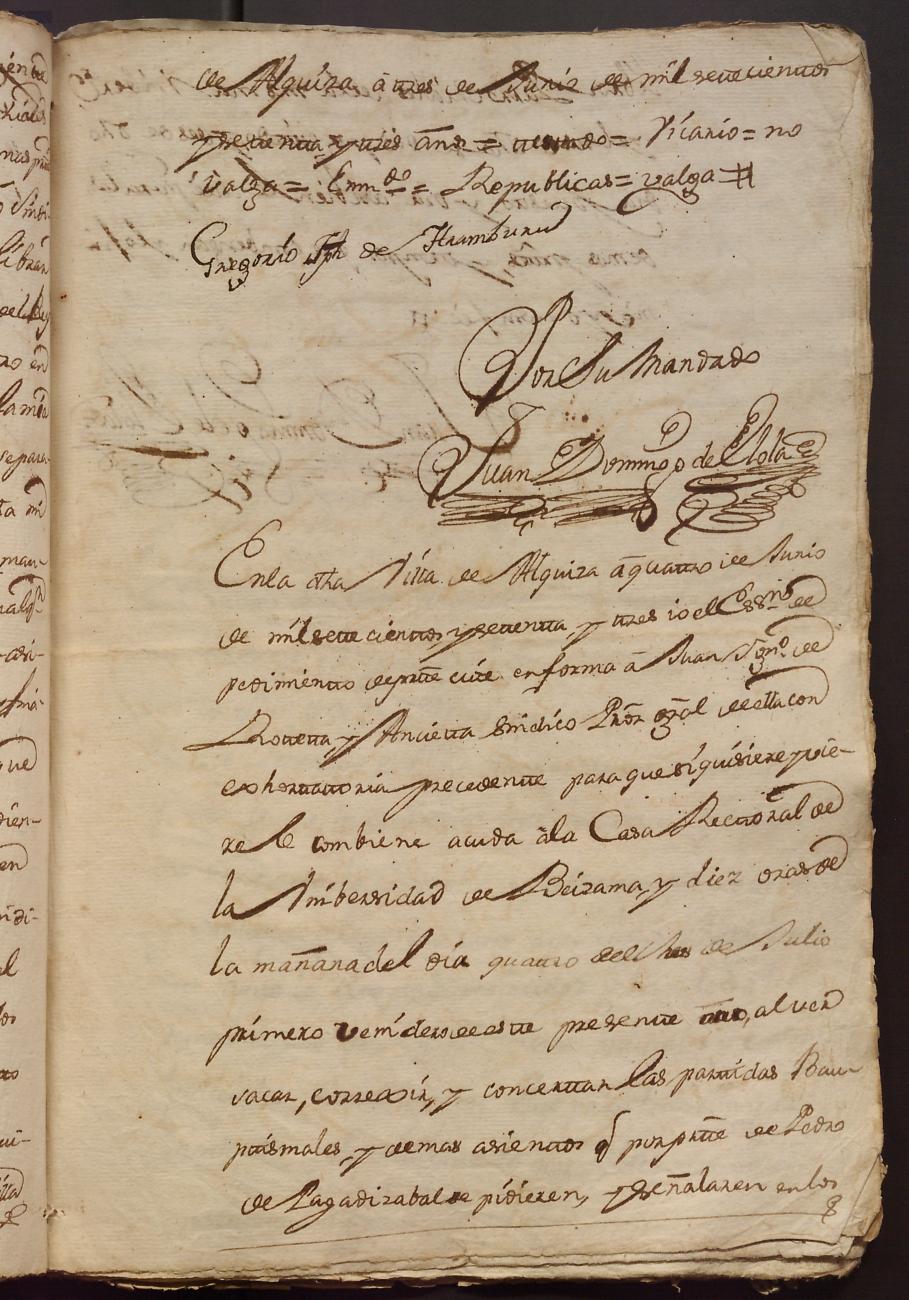 de Alquiza à tres de Junio de mil setecientos
y setenta y tres años = = Vicario = no
valga = Enmdo = Republicas = valga =
Gregorio Jph de Aramburu
Por Su Mandado
Juan Domingo de Elola
En la dha Villa de Alquiza à quatro de Junio
de mil setecientos y setenta, y tres io el Essno de
pedimiento de prte cité en forma â Juan Domgo de
Lrotteta y Ancietta Sindico Pror gral de ella con
exhortatoria precedente para que si quisiere y vie-
re le combiene acuda à la Casa Rectoral de
la Vniberssidad de Beizama, y diez oras de
la mañana del dia quatro del mes de Julio
primero venidero de este presente año, al ver
sacar, correxir, y concertar las partidas Bau-
tismales, y demas asientos q por prte de Pedro
de Lagadizabal se pidieren, y señalaren en los